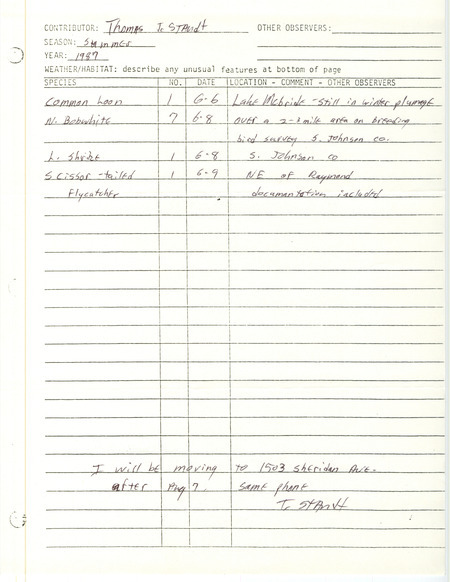 CONTRIBUTOR: Thomas J. Staudt OTHER OBSERVERS:
SEASON: Summer
YEAR: 1987
WEATHER/HABITAT: describe any unusual features at bottom of page
SPECIES NO. DATE LOCATION - COMMENT - OTHER OBSERVERS
Common Loon 1 6-6 Lake McBride - Still in winter plumage
N. Bobwhite 7 6-8 over a 2-3 mile area on breeding
bird survey S. Johnson co.
L. Shrike 1 6-8 S. Johnson co
Scissor-tailed 1 6-9 NE of Raymond
Flycatcher documentation included
I will be moving to 1503 Sheridan Ave.
after Aug 7. same phone
T. Staudt